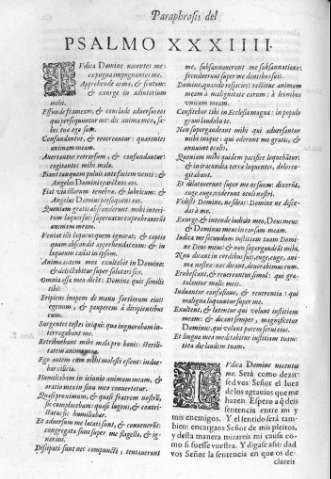 Paraphrasis del
PSALMO XXXIIII.
IVdica Domine nocentes me:
expugna impugnantes me.
Apprehende arma, & scutum:
& exurge in adiutorium
mihi.
Effunde frameam, & conclude aduersus eos
qui persequuntur me: dic animæ meæ, sa-
lus tua ego sum.
Confundantur, & reuereantur: quærentes
animam meam.
Auertantur retrorsum, & confundantur:
cogitantes mihi mala.
Fiant tanquam puluis ante faciem venti: &
Angelus Domini coarctans eos.
Fiat via illorum tenebræ, & lubricum: &
Angelus Domini persequens eos.
Quoniam gratis absconderunt mihi interi-
tum laquei sui: superuacue exprobrauerunt
animam meam.
Veniat illi laqueus quem ignorat, & captio
quam abscondit apprehendat eum: & in
laqueum cadat in ipsum.
Anima autem mea exultabit in Domino:
& delectabitur super salutari suo.
Omnia ossa mea dicent: Domine quis similis
tibi:
Eripiens inopem de manu fortiorum eius:
egenum, & pauperem à diripientibus
eum.
Surgentes testes iniqui: quæ ignorabam in-
terrogabant me.
Retribuebant mihi mala pro bonis: sterili-
tatem animæ meæ.
Ego autem cum mihi molesti essent: indue-
bar cilicio.
Humiliabam in ieiunio animam meam, &
oratio mea in sinu meo conuertetur.
Quasi proximum, & quasi fratrem nostrum,
sic complacebam: quasi lugens, & contri-
status sic humiliabar.
Et aduersum me lætati sunt, & conuenerũt:
congregata sunt super me flagella, & ig-
noraui.
Dissipati sunt nec compuncti, tentauerunt
me, subsannauerunt me subsannatione:
frenduerunt super me dentibus suis.
Domine, quando respicies: restitue animam
meam à malignitate eorum: à leonibus
vnicam meam.
Confitebor tibi in Ecclesia magna: in populo
graui laudabo te.
Non supergaudeant mihi qui aduersantur
mihi iniquè: qui oderunt me gratis, &
annuunt oculis.
Quoniam mihi quidem pacifice loquebãtur:
& in iracundia terræ loquentes, dolos co-
gitabant.
Et dilatauerunt super me os suum: dixerũt,
euge, euge, viderunt oculi nostri.
Vidisti Domine, ne sileas: Domine ne disce-
das à me.
Exurge, & intende iudicio meo, Deus meus:
& Dominus meus in causam meam.
Iudica me secundum iustitiam tuam Domi-
ne Deus meus: & non supergaudeãt mihi.
Non dicant in cordibus suis, euge, euge, ani-
mæ nostræ: nec dicant, deuorabimus eum.
Erubescant, & reuereantur simul: qui gra-
tulantur malis meis.
Induantur confusione, & reuerentia: qui
maligna loquuntur super me.
Exultent, & lætentur qui volunt iustitiam
meam: & dicant semper, magnificetur
Dominus, qui volunt pacem serui eius.
Et lingua mea meditabitur iustitiam tuam:
tota die laudem tuam.
IVdica Domine nocentes
me. Será como dezir:
sed vos Señor el Iuez
de los agrauios que me
hazen. Espero q̃ deis
sentencia entre mi y
mis enemigos. Y el sentido será tam-
bien: encargaos Señor de mis pleitos,
y desta manera mirareis mi causa como
si fuesse vuestra. Y digase assi: dad
vos Señor la sentencia en que os de-
clareis